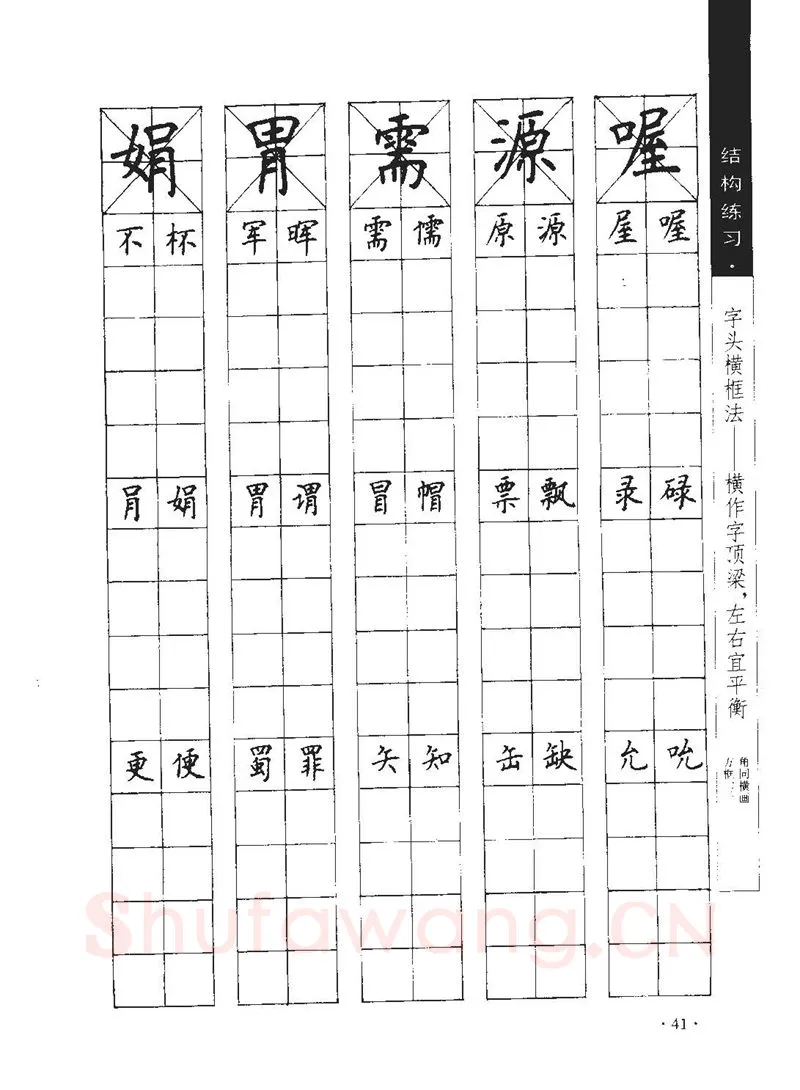 结构练习·
字头横框法——横作字顶梁,左右宜平衡
喔
屋 喔
录 碌
允 吮
源
原 源
票 飘
缶 缺
需
需 懦
冒 帽
矢 知
胃
军 晖
胃 谓
蜀 罪
娟
不 杯
肙 娟
更 便
Shufawang.CN
·41·